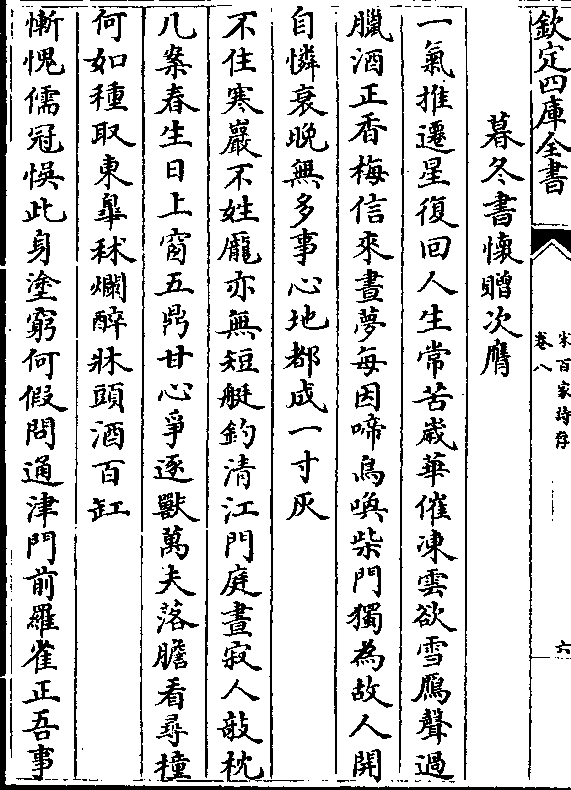 欽定四庫全書
宋百家詩存
卷八
六
暮冬書懷贈次膺
一氣推遷星復回人生常苦歲華催凍雲欲雪鴈聲過
臘酒正香梅信來晝夢每因啼鳥喚柴門獨為故人開
自憐衰晚無多事心地都成一寸灰
不住寒巖不姓龎亦無短艇釣清江門庭晝寂人敲枕
几案春生日上窗五鼎甘心爭逐獸萬夫落膽看尋撞
何如種取東臯秫爛醉牀頭酒百缸
慚愧儒冠悞此身塗窮何假問通津門前羅雀正吾事